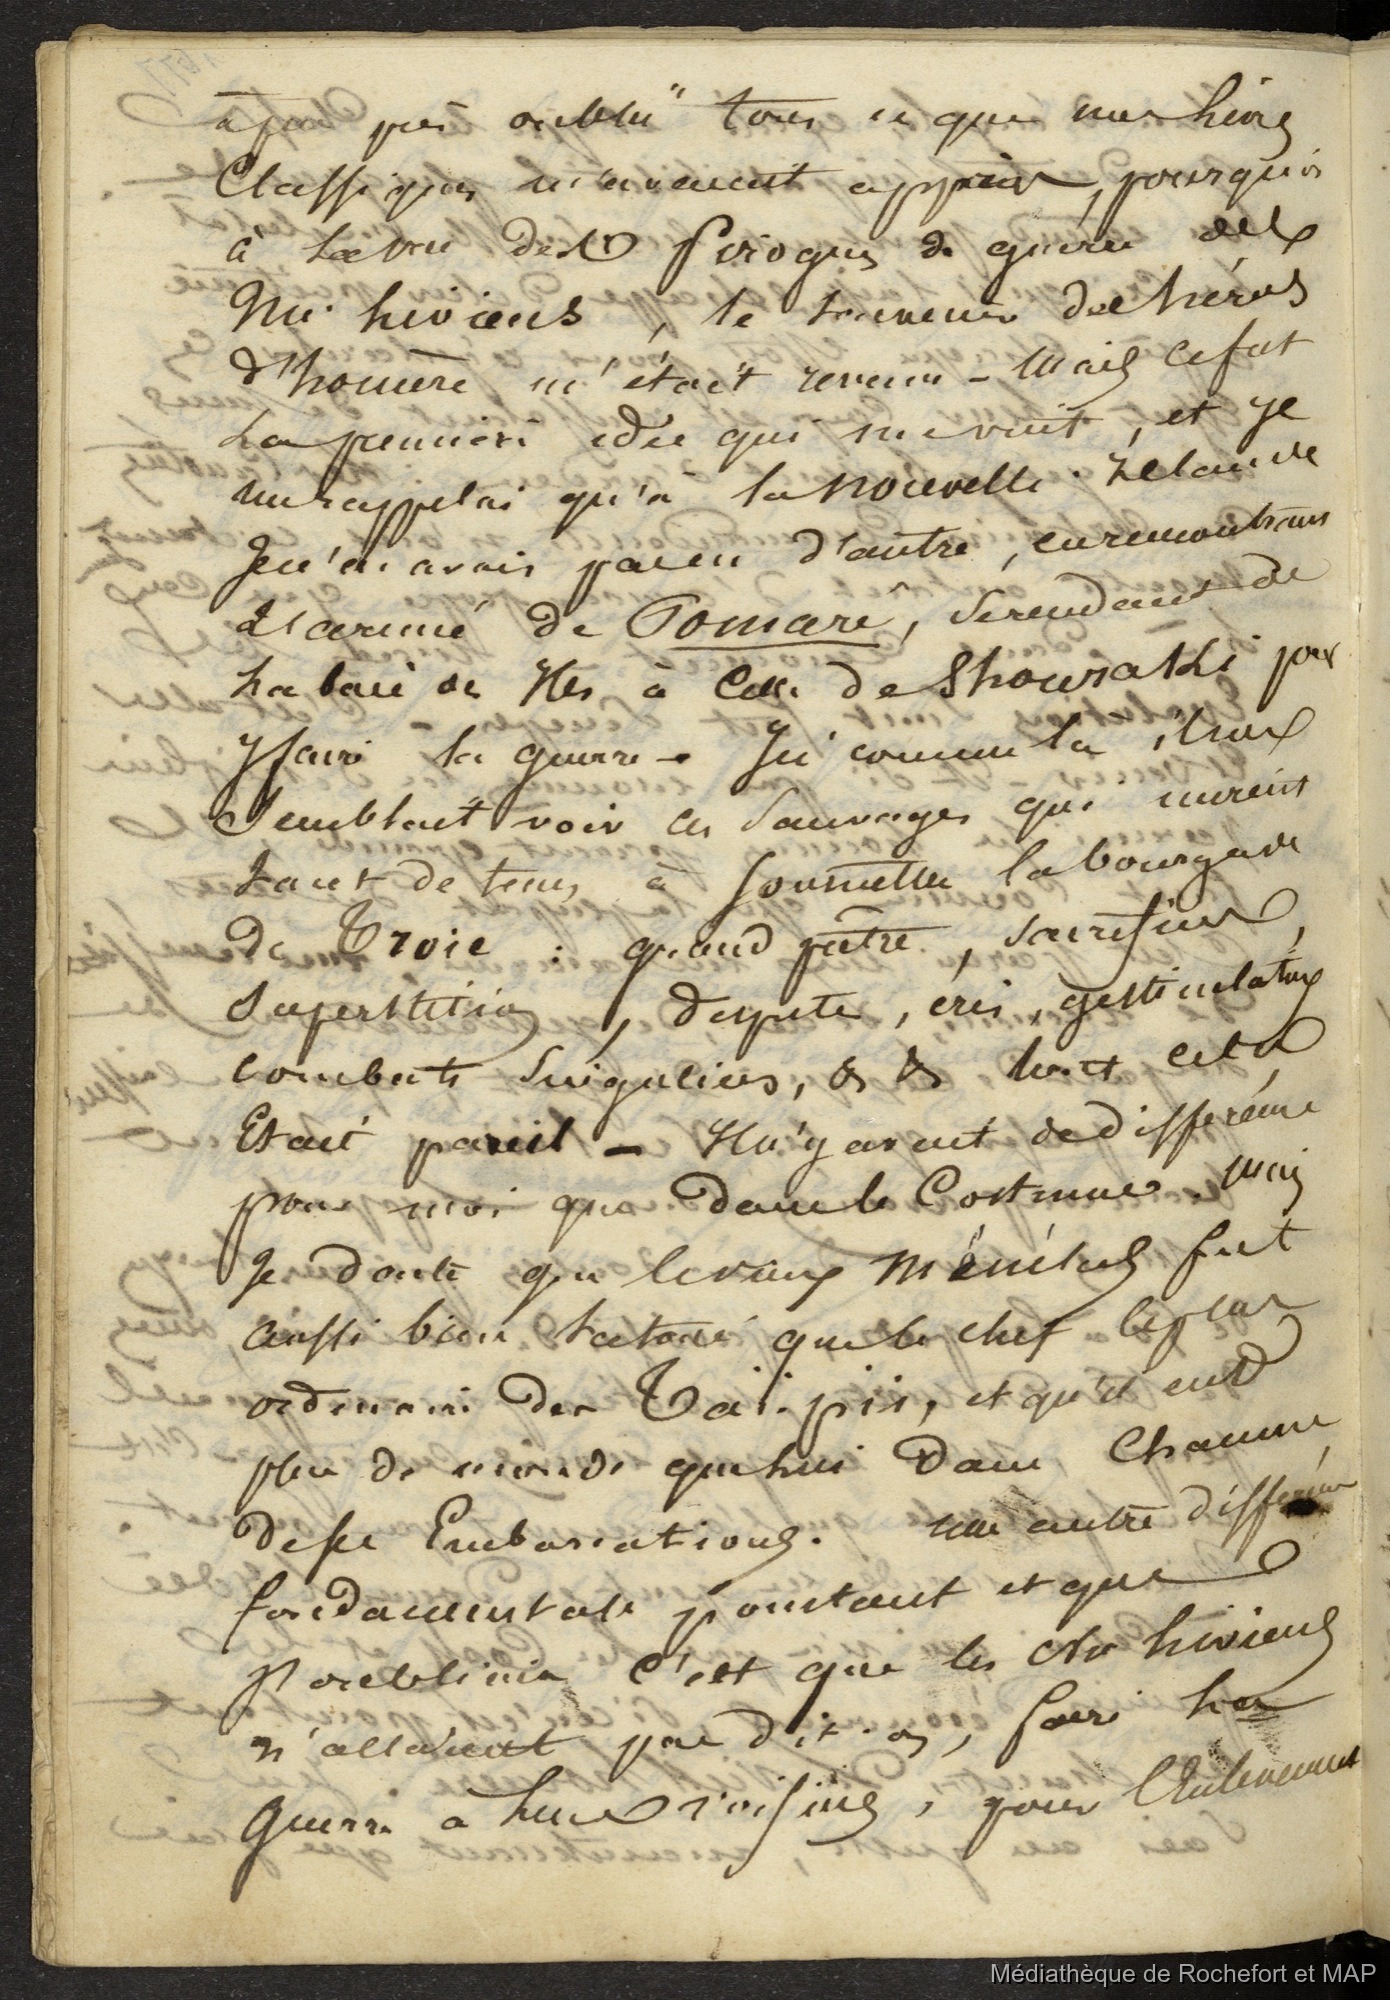 à peu près oublié tous ce que mes livres
Classiques m'avaient appris, pourquoi
à la vue des Pirogues de guerre des
Nu-hiviens, le souvenir des héros
d'homère m'était revenu - Mais ce fut
La première idée qui me vint, et je
me rappelai qu'à la nouvelle-Zélande
Je n'en avais pas eu d'autre, en rencontrant
L'armée de Pomaré, se rendant de
La baie des Iles à Celle de Shouraki pour
y faire la guerre - Ici comme là il me
Semblait voir ces Sauvages qui mirent
tant de tems à soumettre la bourgade
De Troie : grand prêtre, sacrifices,
Superstition, dispute, cris, gesticulations
combats singuliers, & & tout cela
Etait pareil - Il n'y avait de différence
pour moi que dans le Costume. Mais
Je doute que le vieux Ménélas fut
aussi bien tatoué que le chef le plus
ordinaire des Taï-pis, et qu'il eut
plus de monde que lui dans Chacune
de ses Embarcations. une autre différence
fondamentale pourtant et que
J'oubliais c'est que les Nu hiviens
n'allaient pas dit-on, faire la
guerre à leurs voisins, pour l'Enlèvement
Médiathèque de Rochefort et MAP